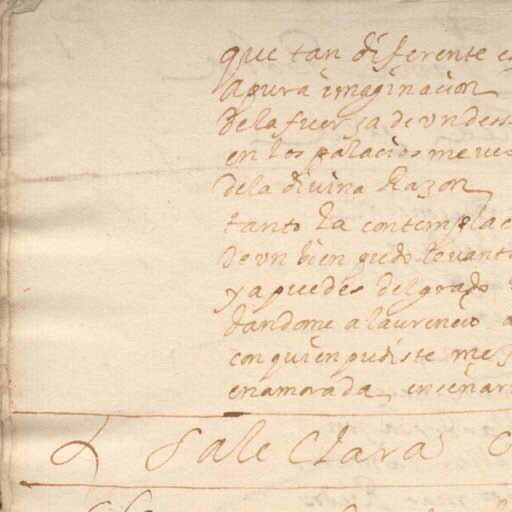 que tan diferente es
a pura imaginacion
de la fuerza de vn des
en los palacios me ves
de la divina Razon
tanto la contemplac
de vn bien pudo levanta
ya puedes del grado
dandome a laurencio a
con quien pudiste me
enamorada enseñar
Sale Clara